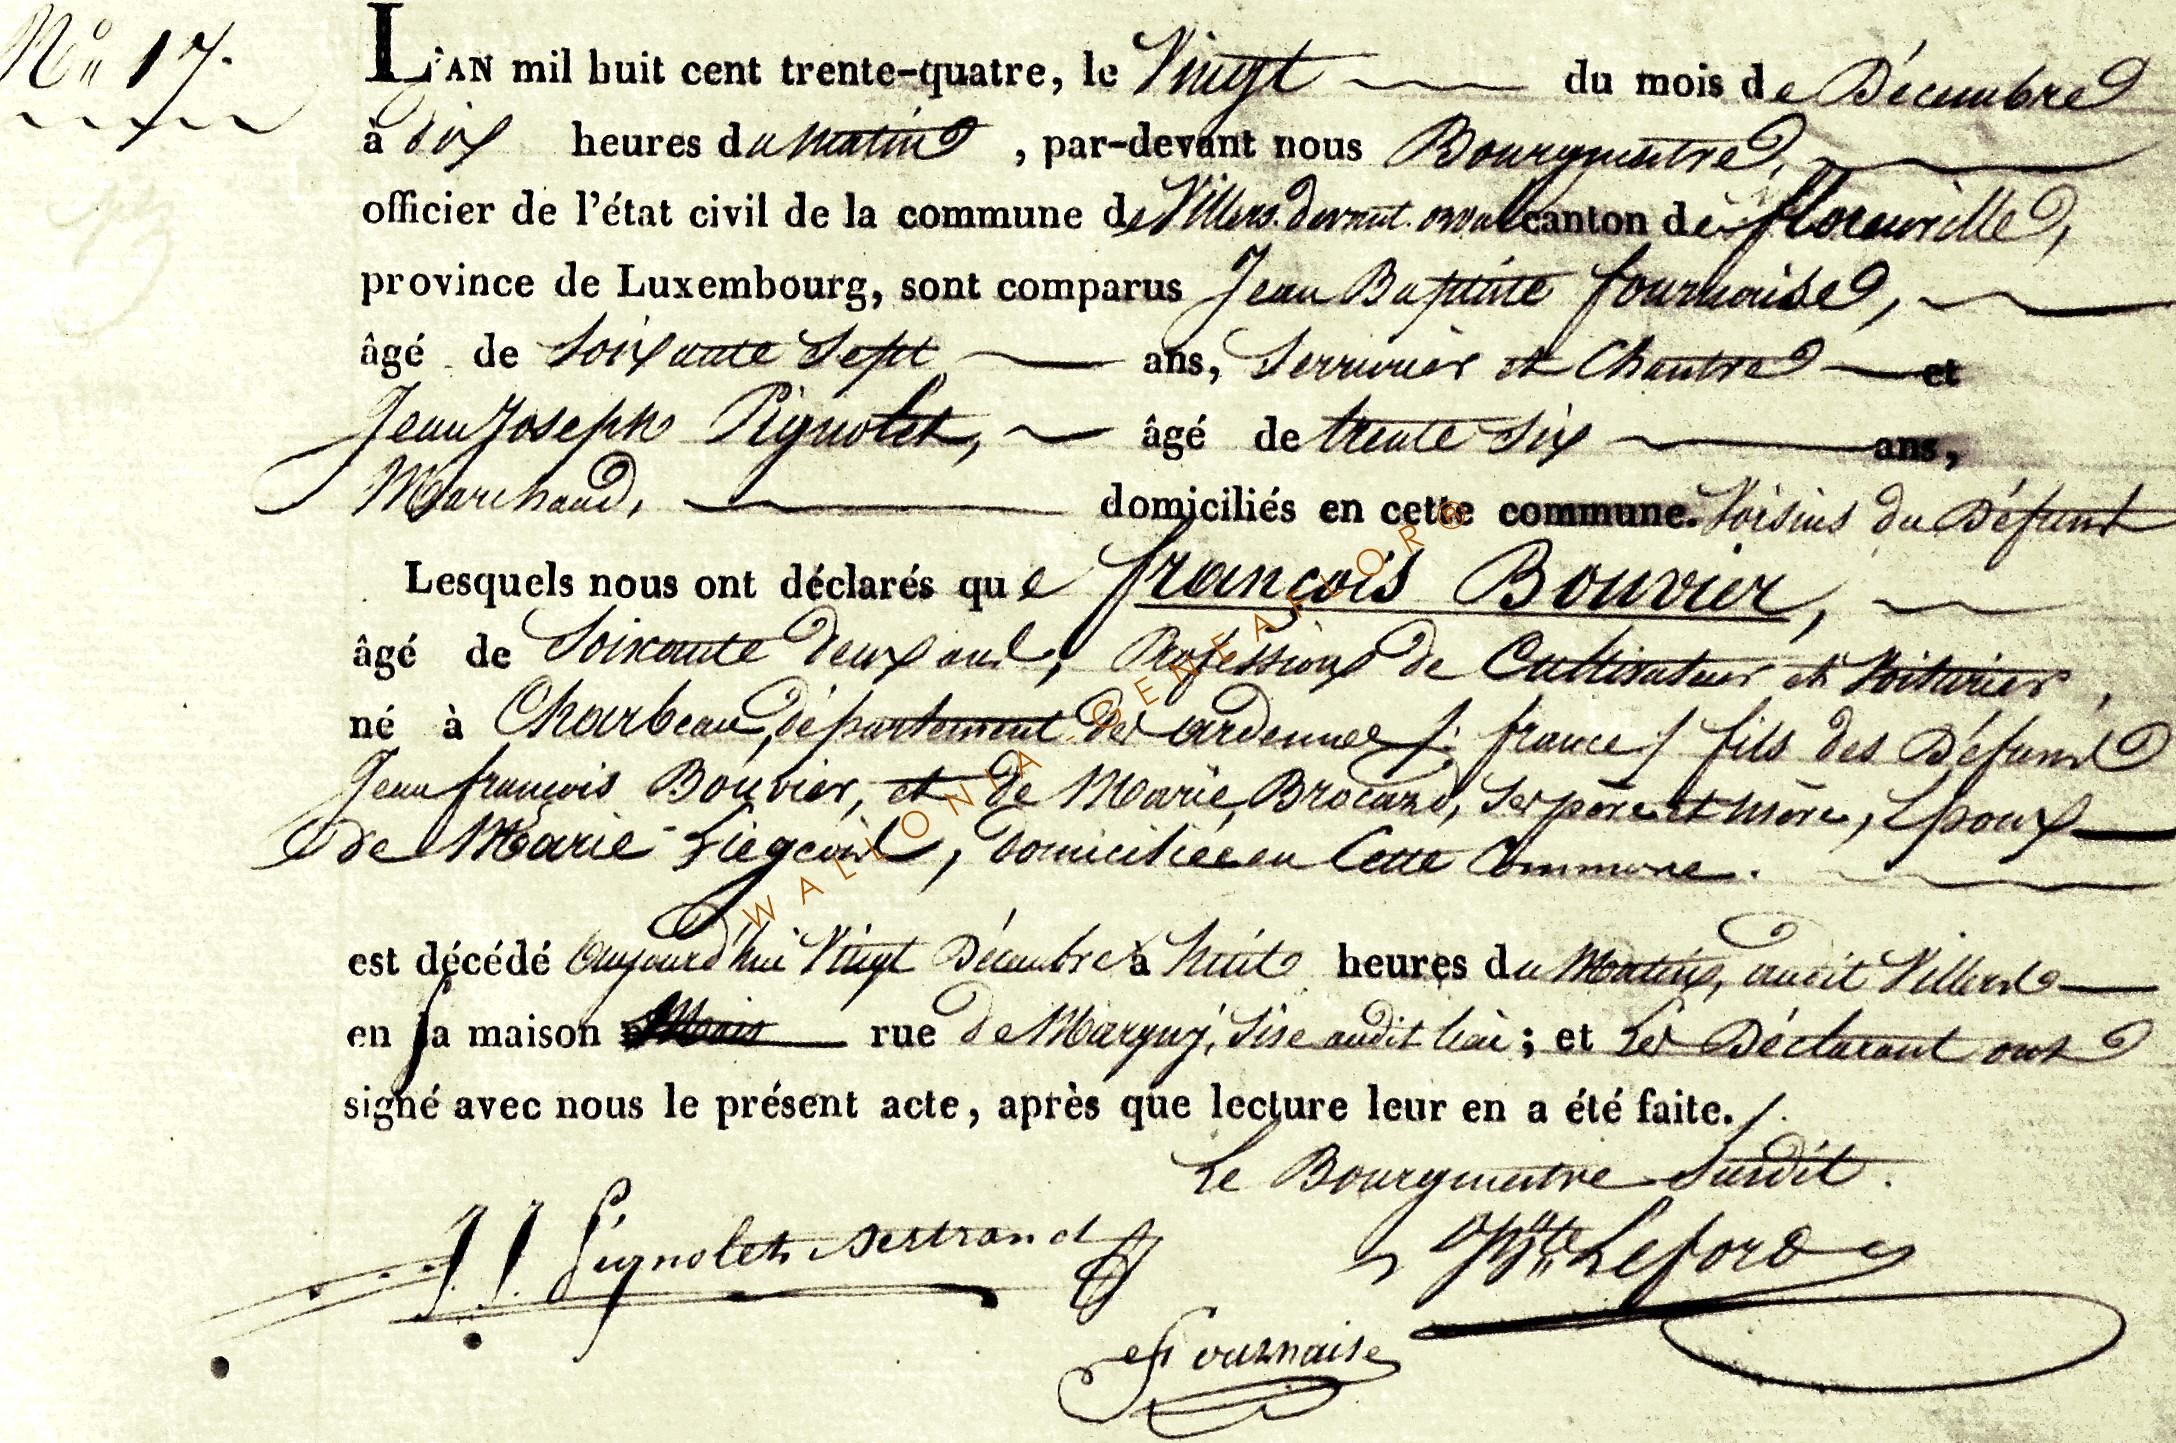 No 17.
L'AN mil huit cent trente-quatre, le Vingt du mois de Décembre
à dix heures du matin, par-devant nous Bourgmestre,
officier de l'état civil de la commune de Villers devant orval canton de florenville,
province de Luxembourg, sont comparus Jean Baptiste fournaise,
âgé de soixante sept ans, Serrurier et Chantre et
Jean Joseph Pignolet, âgé de trente six ans,
Marchand, domiciliés en cette commune. Voisins du Défunt
Lesquels nous ont déclarés que françois Bouvier,
âgé de Soixante deux ans, Profession de Cultivateur et Voiturier,
né à Charbeau, département des ardennes /: france / fils des Défunts
Jean françois Bouvier, et de Marie Brocard, ses père et mère, Epoux
de Marie Liegeois, domiciliée en Cette Commune.
est décédé aujourd'hui Vingt Décembre à huit heures du Matin, audit Villers
en sa maison rue de Margny, sise audit lieu ; et Les Déclarant ont
signé avec nous le présent acte, après que lecture leur en a été faite. /.
Le Bourgmestre Susdit.
J J Pignolet Bertrand
Leford
Fournaise
WALLONIA GENEAFLOR ©